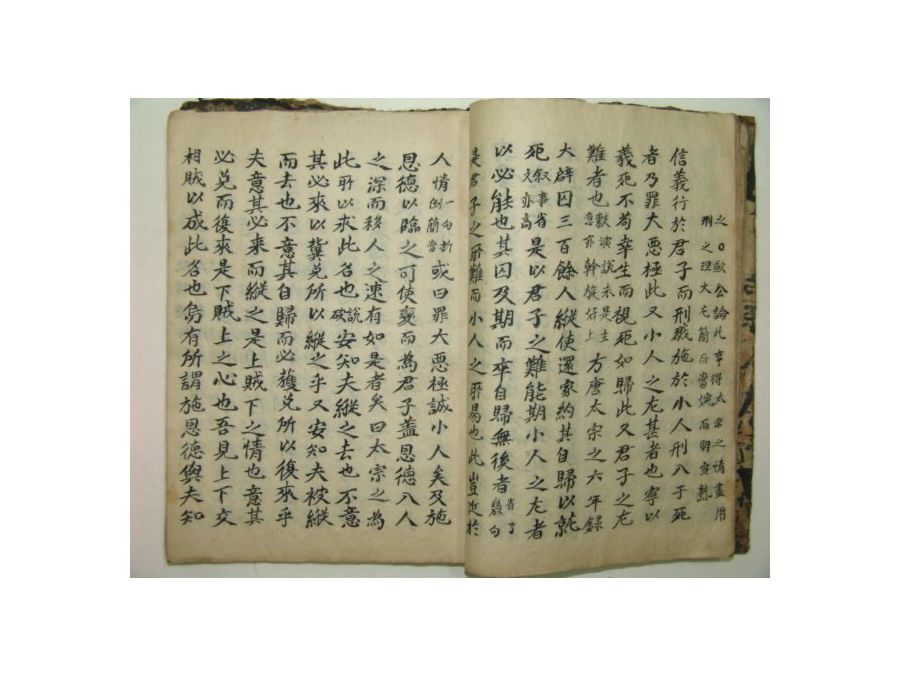 之〇歐公論此事得太宗之情盡用
刑之理大尤簡而當婉而明宜熟
信義行於君子而刑戮施於小人刑入于死
者乃罪大惡極此又小人之尤甚者也寧以
義死不苟幸生而視死如歸此又君子之尤
難者也歎演說未是主意亦幹旋好上方唐太宗之六年錄
大辟囚三百餘人縱使還家約其自歸以就
死叙事省文亦高是以君子之難能期小人之尤者
以必能也其囚及期而卒自歸無後者省了幾句
是君子之所難而小人之所易也此豈近於
人情一句折倒簡當或曰罪大惡極誠小人矣及施
恩德以臨之可使變而為君子盖恩德入人
之深而移人之速有如是者矣曰太宗之為
此所以求此名也說破安知夫縱之去也不意
其必來以冀免所以縱之乎又安知夫被縱
而去也不意其自歸而必獲免所以復來乎
夫意其必来而縱之是上賊下之情也意其
必免而復來是下賊上之心也吾見上下交
相賊以成此名也烏有所謂施恩德與夫知